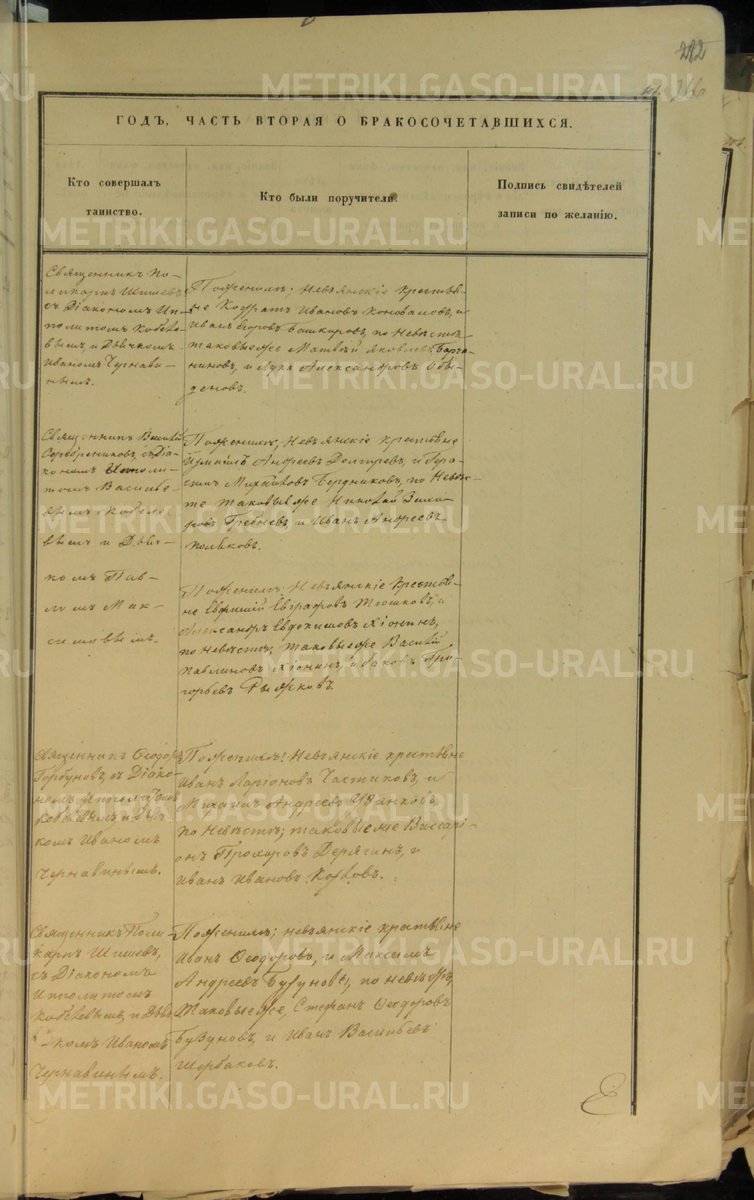 282
266
ГОДЪ, ЧАСТЬ ВТОРАЯ О БРАКОСОЧЕТАВШИХСЯ.
Кто совершалъ
таинство.
Кто были поручители.
Подпись свидѣтелей
записи по желанію.
Священникъ По-
ликарпъ Шишевъ
съ Діакономъ Ип-
политомъ Кобеле-
вымъ, и Дьячкомъ
Иваномъ Чернави-
нымъ.
По женихѣ; Невьянскіе крестья-
не Кодратъ Ивановъ Коноваловъ, и
Иванъ Башкировъ, по Невѣстѣ
таковые же Матвѣй Яковлевъ
и Лука Александровъ Обы-
деновъ.
Священникъ Василій
Серебренниковъ, съ Діа-
кономъ Иполи-
томъ Василье-
вымъ Кобеле-
вымъ и Дьяч-
комъ Пав-
ломъ Мак-
симовымъ.
По женихѣ; Невьянскіе крестьяне
Измаилъ Андреевъ и Гера-
симъ Михайловъ Бердниковъ, по Невѣс-
тѣ таковые же Николай
и Иванъ Андреевъ
Поляковъ.
По женихѣ; Невьянскіе Крестья-
не Евфимій Евграфовъ и
Александръ Евдокимовъ Хіонинъ,
по Невѣстѣ; таковые же Василій
Павлиновъ Хіонинъ, и Яковъ Гри-
горьевъ Рыжковъ.
Священникъ Ѳеодоръ
Горбуновъ, съ Діако-
номъ Ипполитомъ
Кобелевымъ и Дьяч-
комъ Иваномъ
Чернавинымъ.
По женихѣ; Невьянскіе крестьяне
Иванъ Ларіоновъ Частиковъ, и
Михаилъ Андреевъ
по Невѣстѣ; таковые же Виссарі-
онъ Прохоровъ Дерягинъ, и
Иванъ Ивановъ
Священникъ Поли-
карпъ Шишевъ,
съ Діакономъ
Ипполитомъ
Кобелевымъ, и Дьяч-
комъ Иваномъ
Чернавинымъ.
По женихѣ; невьянскіе крестьяне
Иванъ Ѳеодоровъ, и Максимъ
Андреевъ Бузуновы, по невѣстѣ,
таковые же, Стефанъ Ѳеодоровъ
Бузуновъ, и Иванъ Васильевъ
Щербаковъ.
METRIKI.GASO-URAL.RU